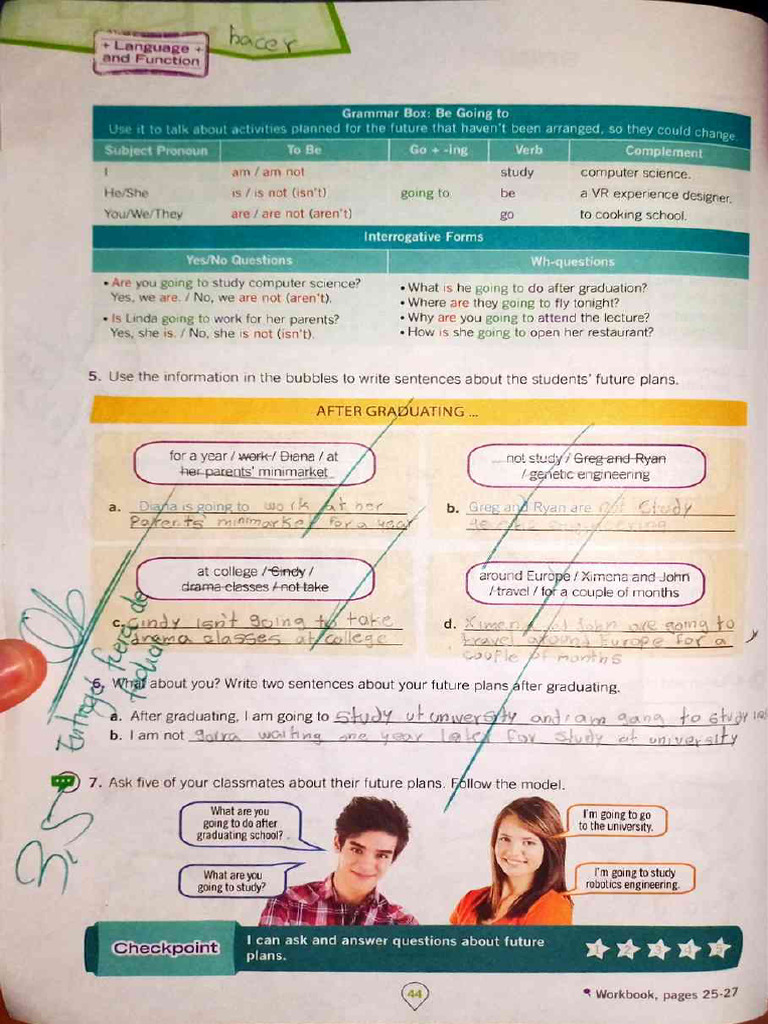 hacer
+ Language +
and Function
Grammar Box: Be Going to
Use it to talk about activities planned for the future that haven't been arranged, so they could change.
Subject Pronoun To Be Go + -ing Verb Complement
I am / am not study computer science.
He/She is / is not (isn't) going to be a VR experience designer.
You/We/They are / are not (aren't) go to cooking school.
Interrogative Forms
Yes/No Questions Wh-questions
• Are you going to study computer science?
Yes, we are. / No, we are not (aren't).
• Is Linda going to work for her parents?
Yes, she is. / No, she is not (isn't).
• What is he going to do after graduation?
• Where are they going to fly tonight?
• Why are you going to attend the lecture?
• How is she going to open her restaurant?
5. Use the information in the bubbles to write sentences about the students' future plans.
AFTER GRADUATING ...
for a year / work / Diana / at
her parents' minimarket
a. Diana is going to work at her
Parents' minimarket for a year
not study / Greg and Ryan
/ genetic engineering
b. Greg and Ryan are not study
genetic engineering
at college / Cindy /
drama classes / not take
c. Cindy isn't going to take
drama classes at college
around Europe / Ximena and John
/ travel / for a couple of months
d. Ximena John are going to
travel around Europe for a
couple of months
6. What about you? Write two sentences about your future plans after graduating.
a. After graduating, I am going to study at university and i am gang to study
b. I am not waiting one year for study at university
Entregó fuera de
fecha
3,5
7. Ask five of your classmates about their future plans. Follow the model.
What are you
going to do after
graduating school?
What are you
going to study?
I'm going to go
to the university.
I'm going to study
robotics engineering.
Checkpoint
I can ask and answer questions about future
plans.
1 2 3 4 5
44
Workbook, pages 25-27